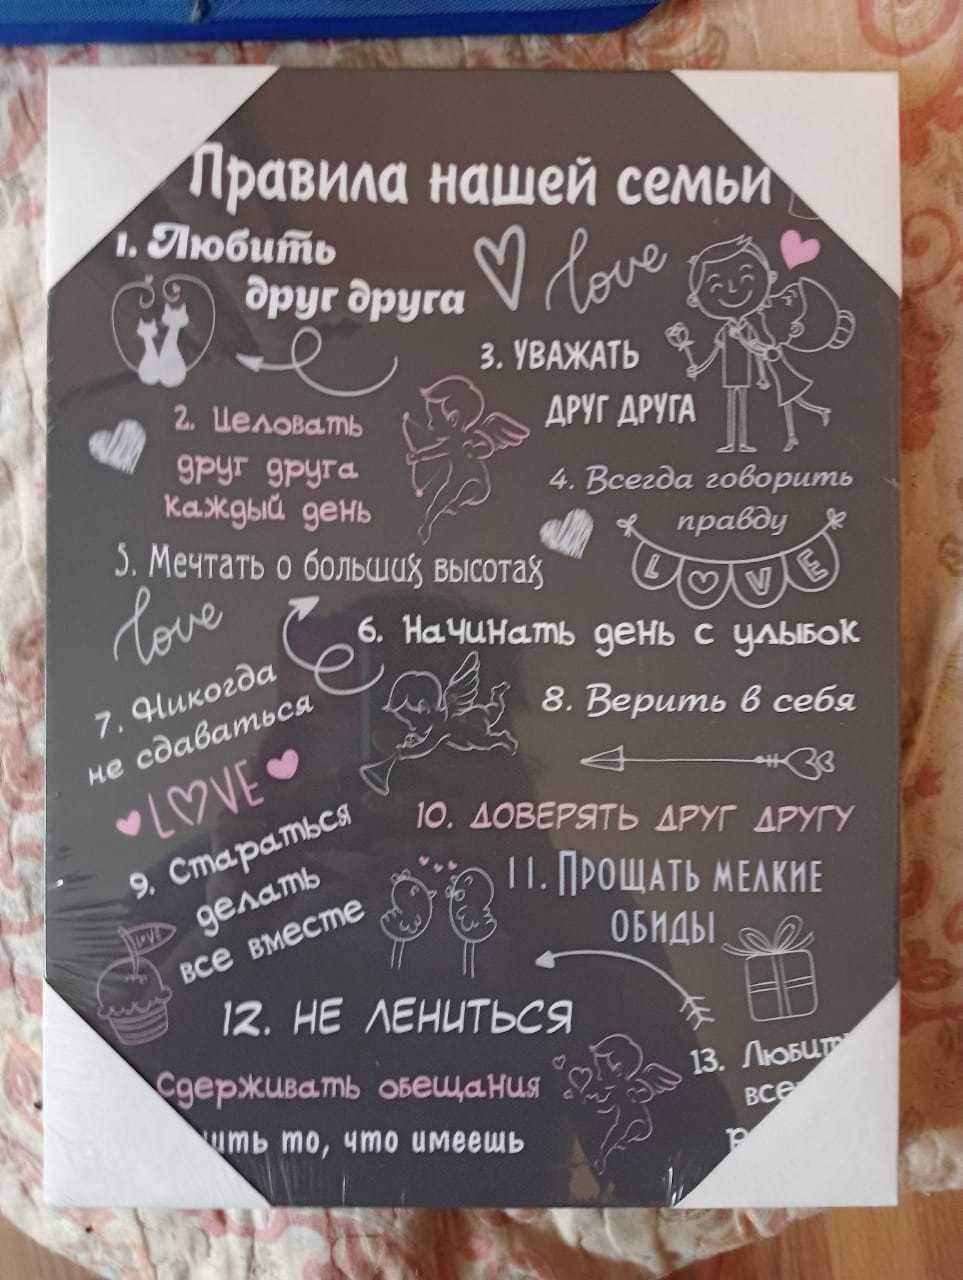 Правила нашей семьи
1. Любить
друг друга
love
3. УВАЖАТЬ
ДРУГ ДРУГА
2. Целовать
друг друга
каждый день
4. Всегда говорить
правду
LOVE
5. Мечтать о больших высотах
love
6. Начинать день с улыбок
7. Никогда
не сдаваться
8. Верить в себя
LOVE
10. ДОВЕРЯТЬ ДРУГ ДРУГУ
9. Стараться
делать
все вместе
11. ПРОЩАТЬ МЕЛКИЕ
ОБИДЫ
LOVE
12. НЕ ЛЕНИТЬСЯ
13. Любит
все
Сдерживать обещания
то, что имеешь